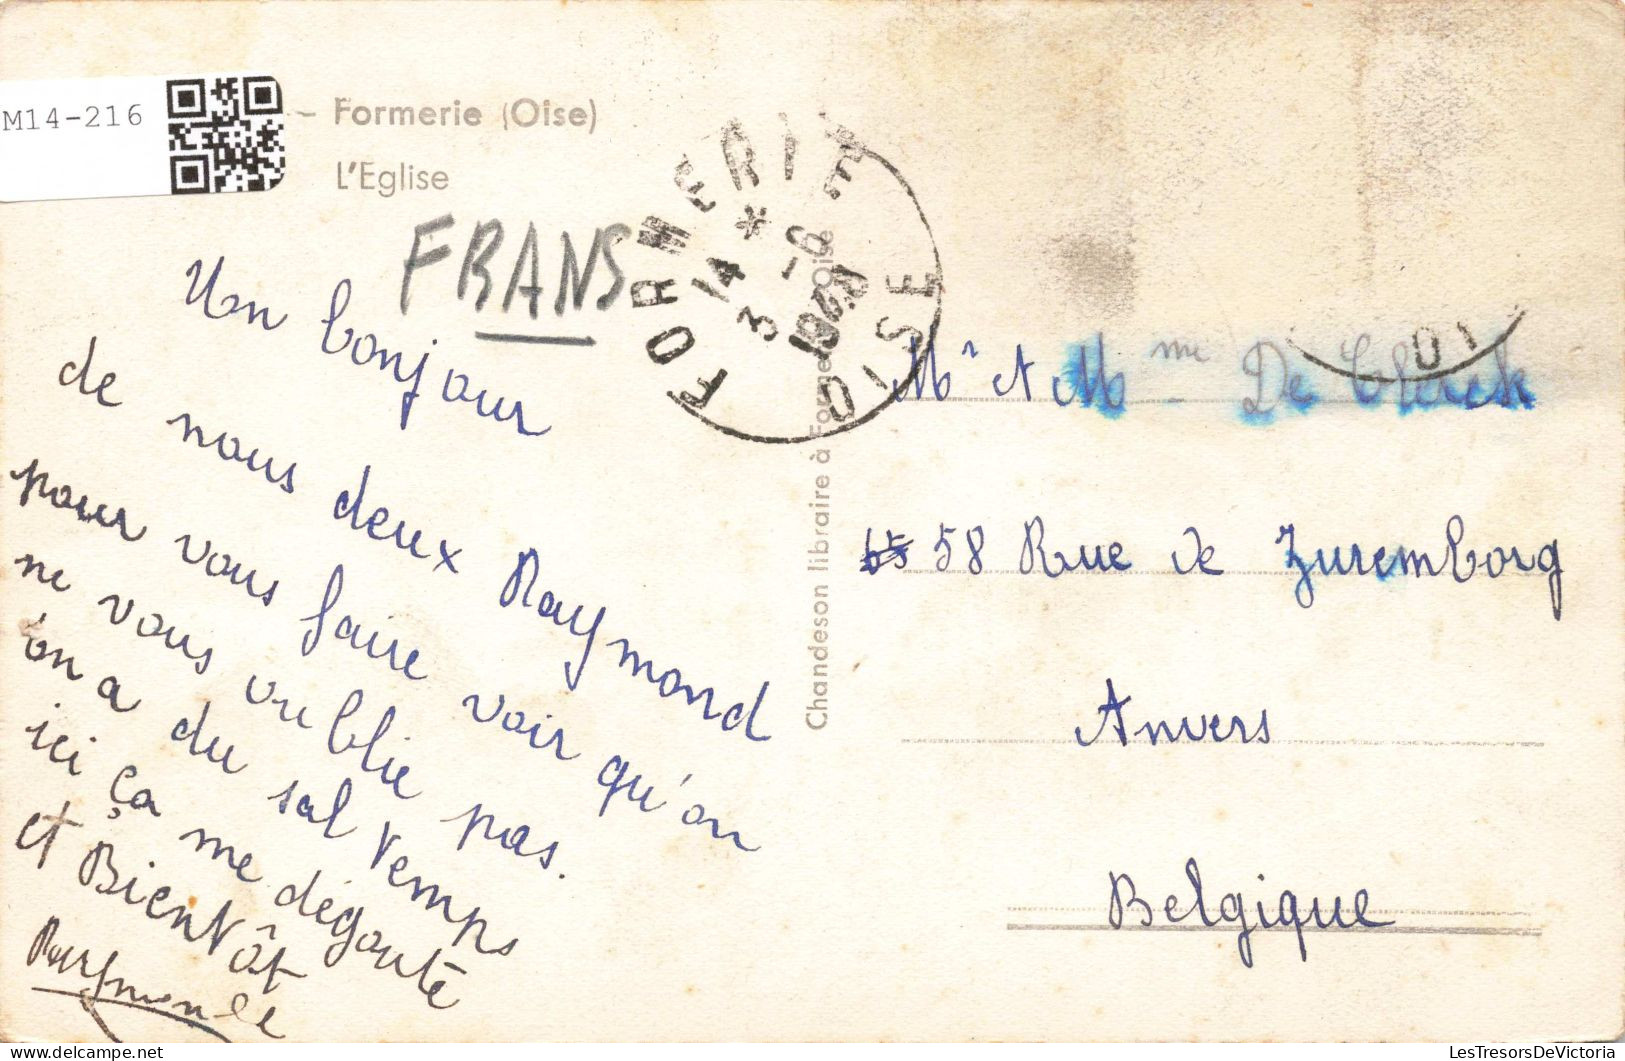 M14-216
- Formerie (Oise)
L'Eglise
FRANS
FORMERIE
14 *
3 -6
OISE
Un bonjour
de nous deux Raymond
pour vous faire voir qu'on
ne vous oublie pas.
on a du sal temps
ici ça me dégoute
et Bientôt
Raymonde
Chandeson libraire à Formerie Oise
Mr et Mme De Clerck
58 Rue de Zuremborg
Anvers
Belgique
LesTresorsDeVictoria